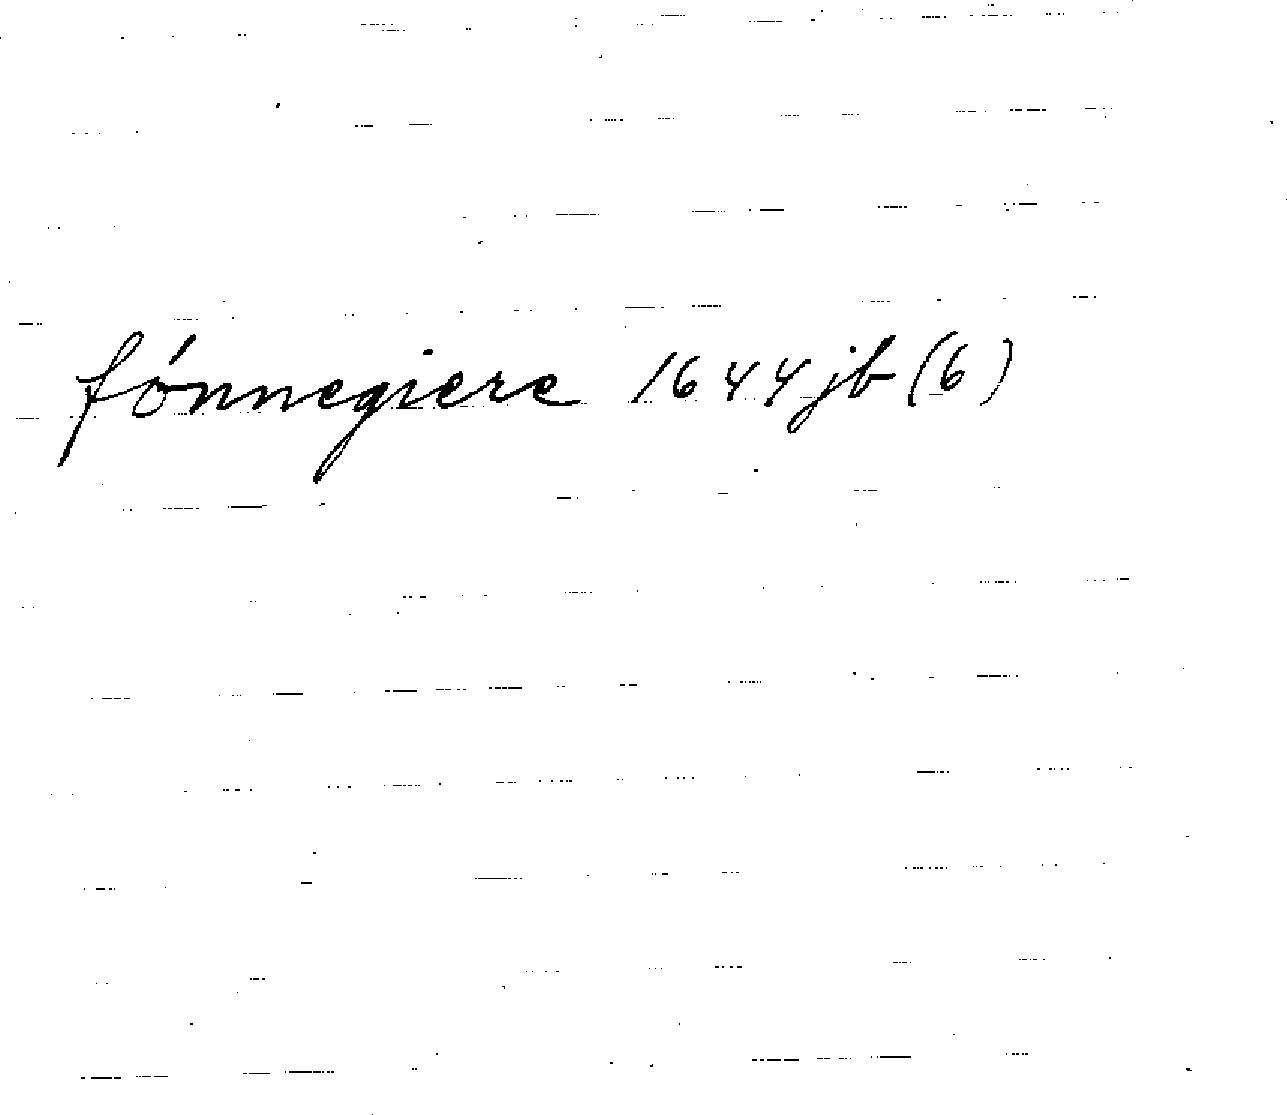 fónnegiere 1644 jb (6)